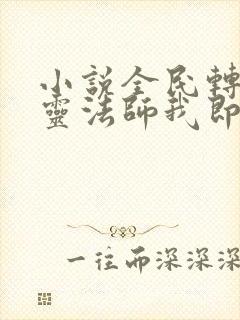 小说全民轉
靈法師我即
一往而深深深